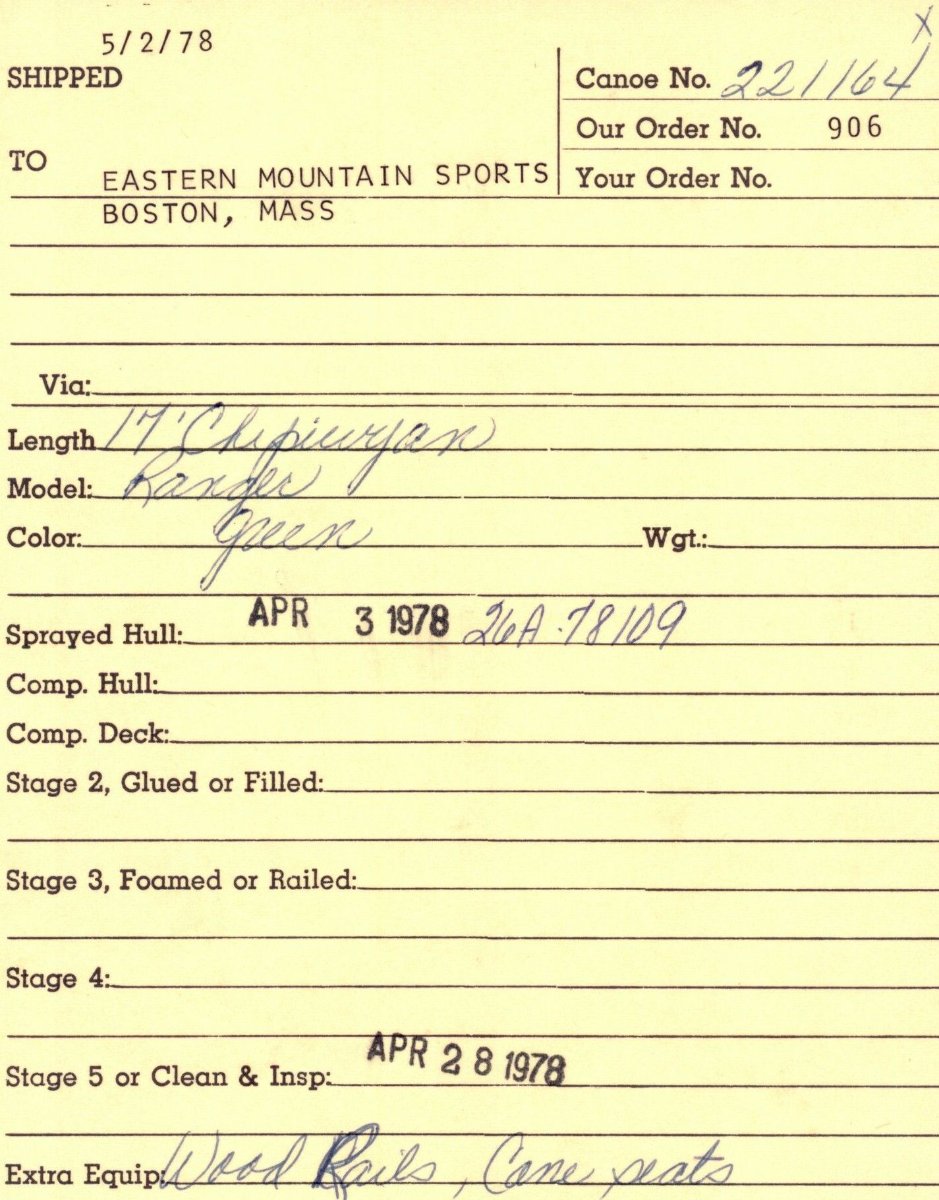 X
5/2/78
SHIPPED
Canoe No. 221164
Our Order No. 906
TO
EASTERN MOUNTAIN SPORTS
Your Order No.
BOSTON, MASS
Via:
Length 17' Chipiwyan
Model: Ranger
Color: Green Wgt.:
Sprayed Hull: APR 3 1978 26A-78109
Comp. Hull:
Comp. Deck:
Stage 2, Glued or Filled:
Stage 3, Foamed or Railed:
Stage 4:
Stage 5 or Clean & Insp: APR 28 1978
Extra Equip: Wood Rails, Cane seats